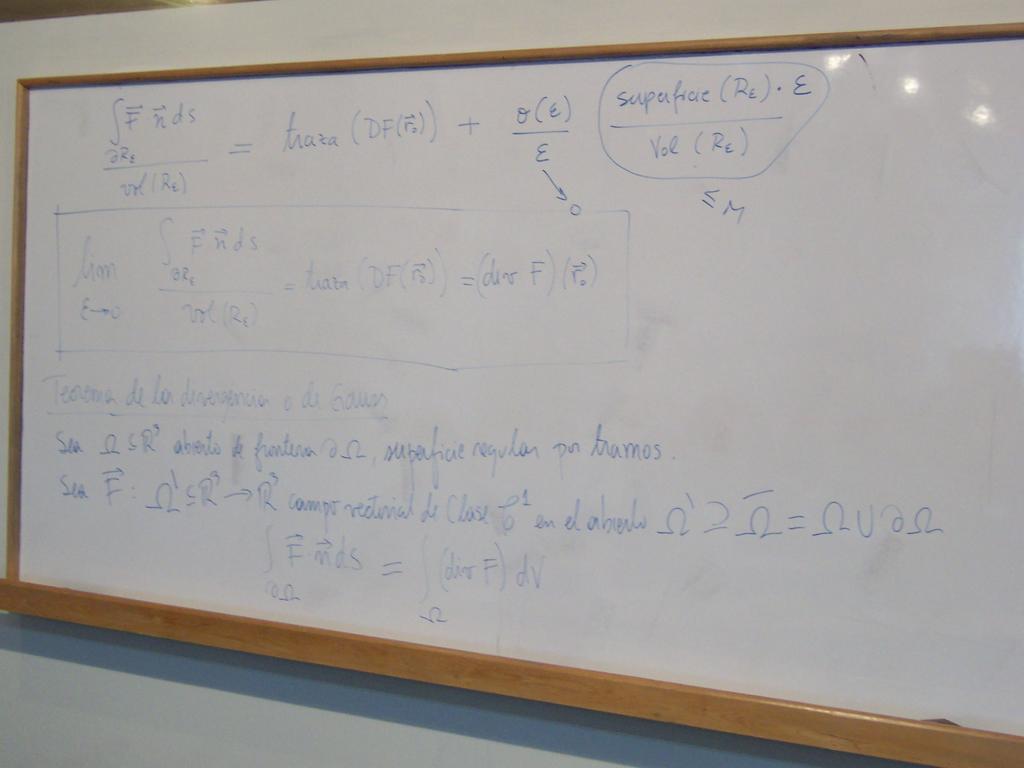 ∫_{∂R_ε} F⃗ n⃗ ds / vol(R_ε) = traza (DF(r⃗₀)) + σ(ε)/ε · superficie (R_ε) · ε / Vol (R_ε)
→ 0 ≤ M
lim_{ε→0} ∫_{∂R_ε} F⃗ n⃗ ds / vol(R_ε) = traza (DF(r⃗₀)) = (div F)(r⃗₀)
Teorema de la divergencia o de Gauss
Sea Ω ⊆ R³ abierto de frontera ∂Ω, superficie regular por tramos.
Sea F⃗ : Ω' ⊆ R³ → R³ campo vectorial de clase C¹ en el abierto Ω' ⊇ Ω̅ = Ω ∪ ∂Ω
∫_{∂Ω} F⃗ n⃗ ds = ∫_Ω (div F) dV